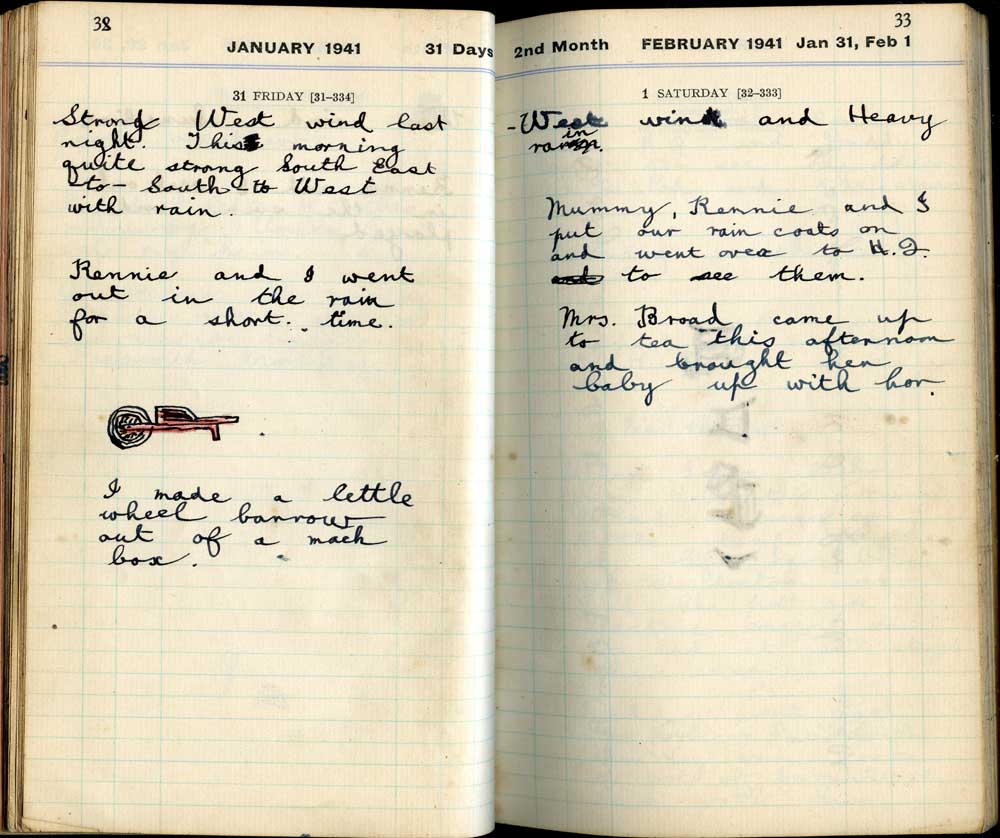 32
JANUARY 1941 31 Days
31 FRIDAY [31–334]
Strong West wind last
night. This morning
quite strong South East
to - South - to West
with rain.
Rennie and I went
out in the rain
for a short. time.
I made a lettle
wheel barrow
out of a mach
box.
33
2nd Month FEBRUARY 1941 Jan 31, Feb 1
1 SATURDAY [32–333]
-West wind and Heavy
rain.
Mummy, Rennie and I
put our rain coats on
and went over to H.Q.
and to see them.
Mrs. Broad came up
to tea this afternoon
and brought her
baby up with her.